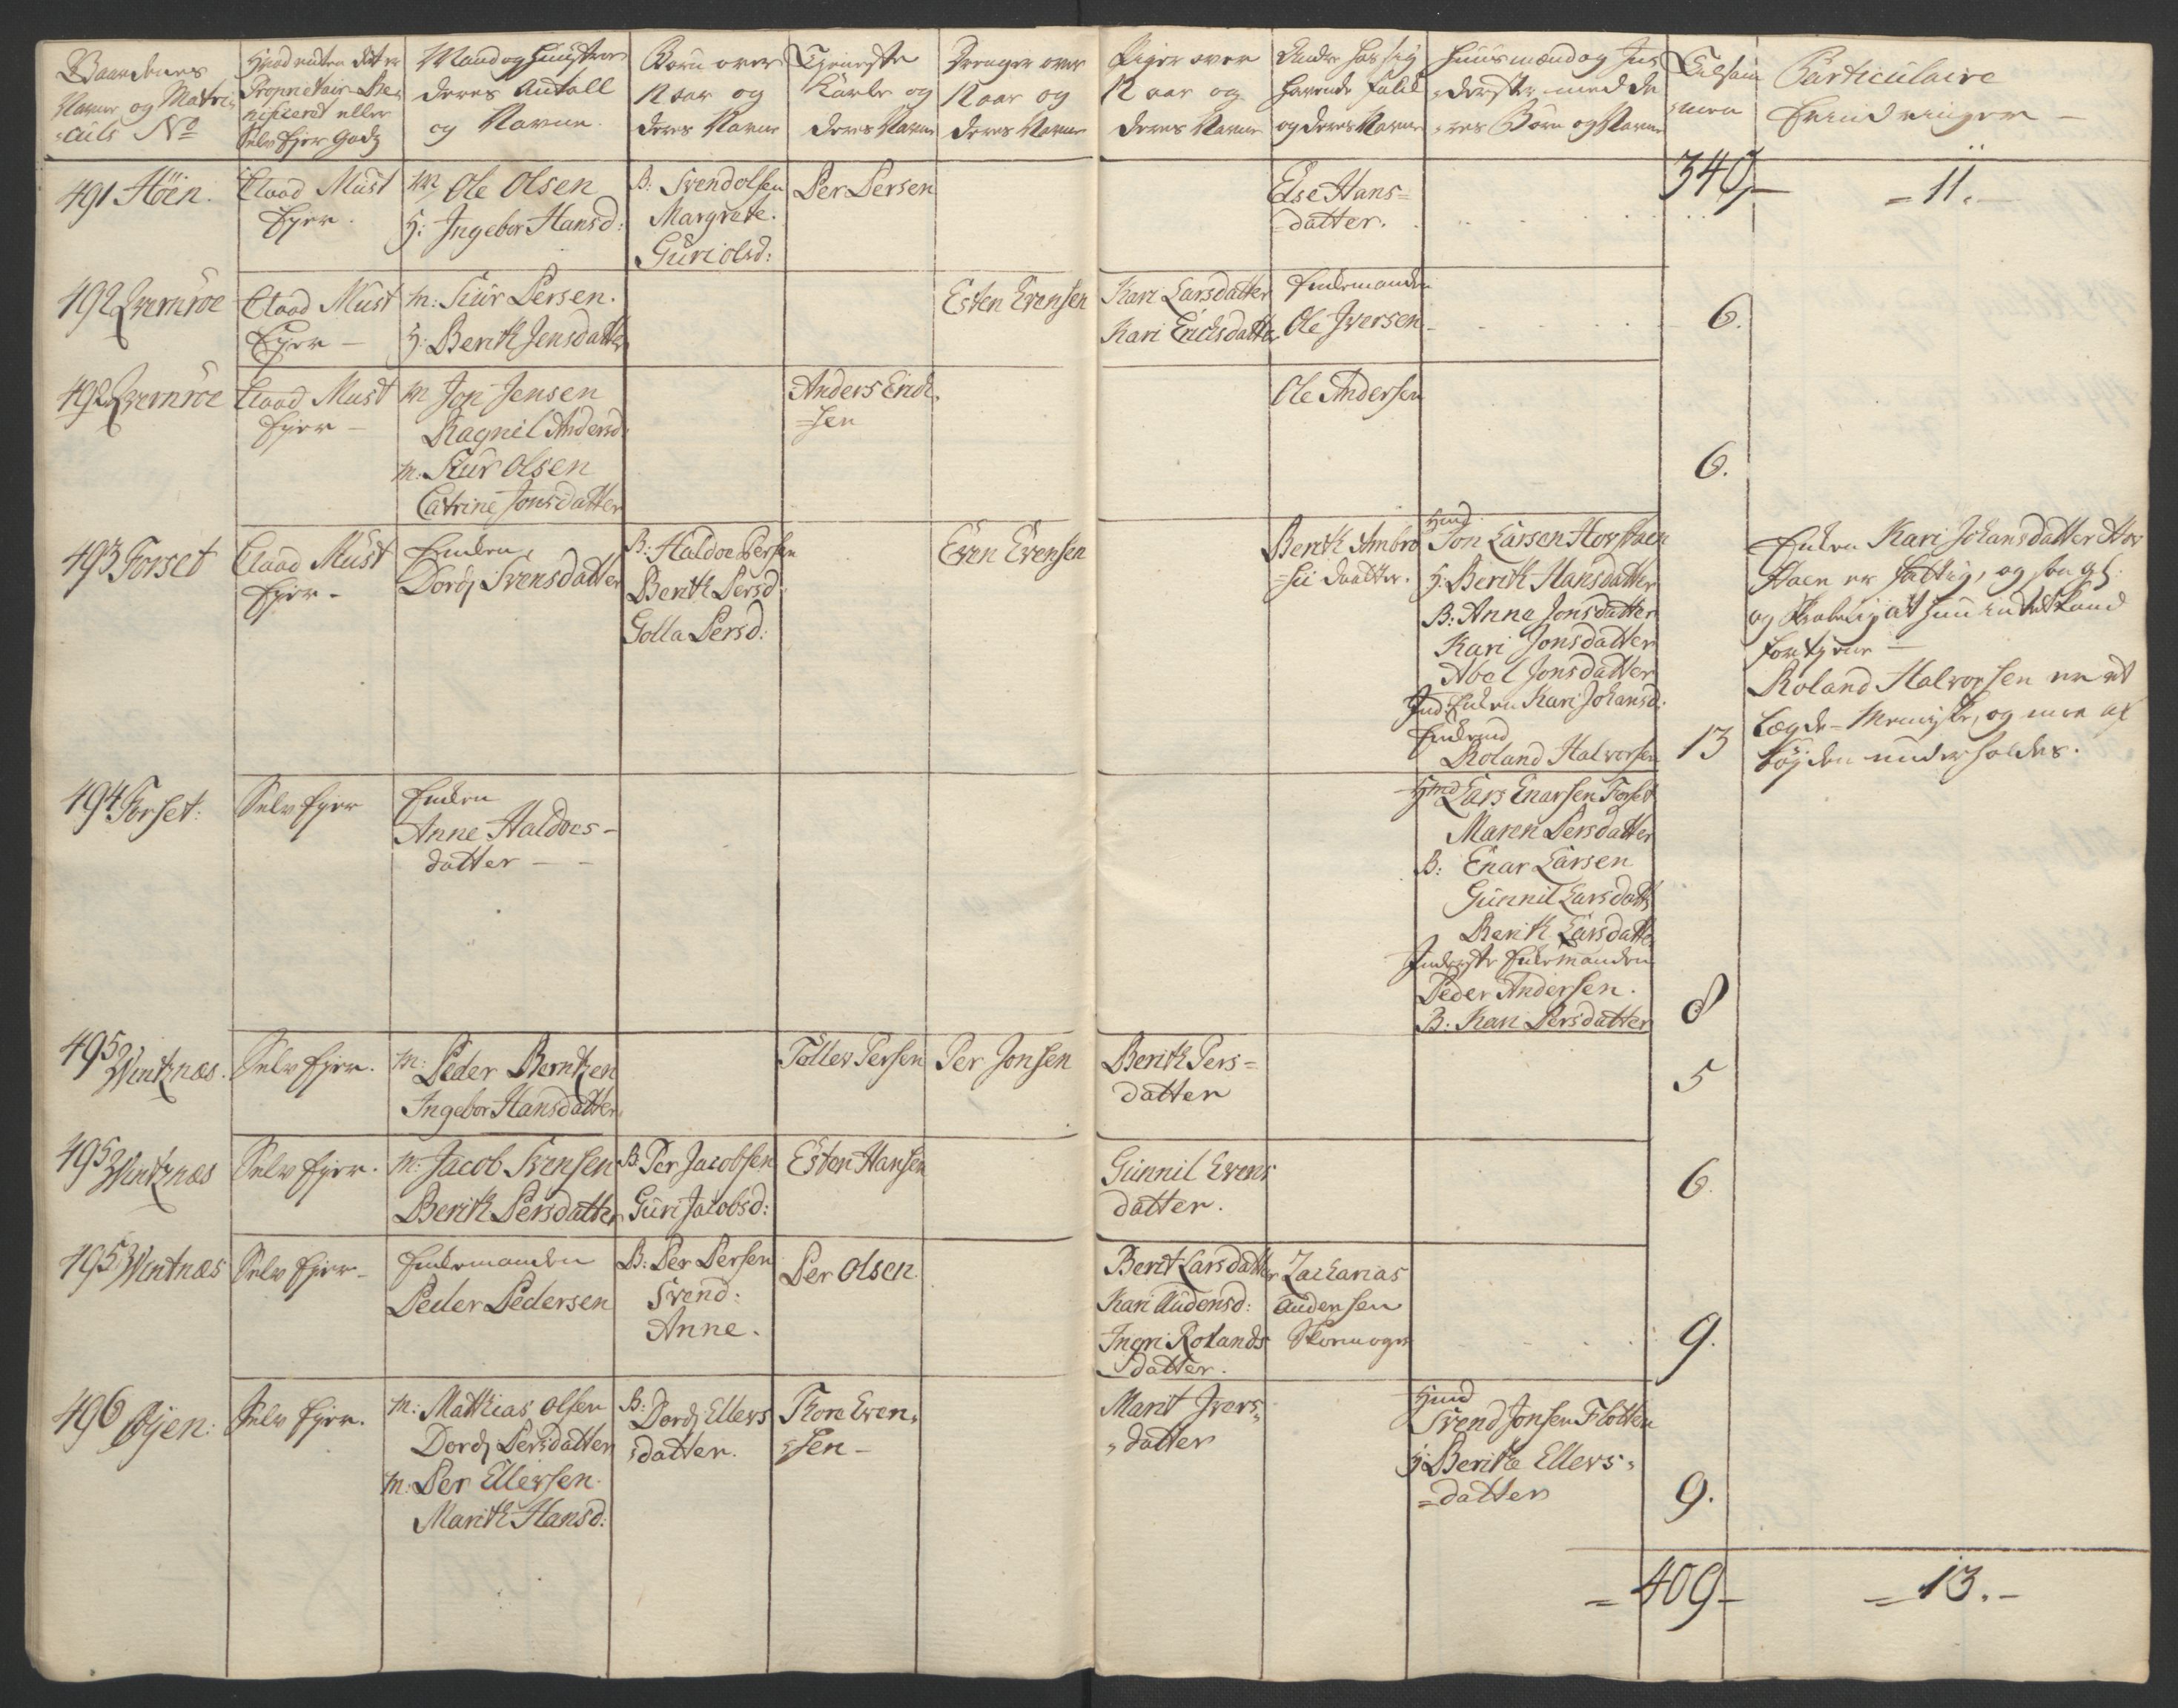 Gaardenes
Navne og Matri-
culs No
Hvad enten det er
Proprietair Be-
nificeret eller
Selv Ejer Godz
Mand og Hustrue
deres Antall
og Navne.
Börn over
12 aar og
deres Navne
Tieneste
Karle og
deres Navne
Drenger over
12 aar og
deres Navne
Piger over
12 aar og
deres Navne
Andre hos sig
havende Folck
og deres Navne
Huusmænd og In-
derster med de-
res Börn og Navne
Tilsam
men
Particulaire
Erindringer
340
= 11.
491 Höen.
Claad Must
Ejer.
M Ole Olsen
H: Ingebor Hansd:
B: Svend Olsen
Margrete.
Guri Olsd:
Per Persen
Else Hans=
datter.
492 Qvernröe
Claad Must
Ejer
M: Siur Persen.
H: Berith Jensdatter
Esten Evensen
Kari Larsdatter
Kari Erichsdatter
Enkemanden
Ole Iversen
6.
492 Qvernröe
Claad Must
Ejer
M Jon Jensen
Ragnil Andersd:
M: Siur Olsen
Catrine Jonsdatter
Anders Erich
=sen
Ole Andersen
6.
493 Forset
Claad Must
Ejer
Enken
Dordj Svensdatter
B: Haldoe Persen
Berith Persd:
Golla Persd:
Even Evensen
Berith Ambro
=sii daatter.
Hmd
Jon Larsen Hovstaen
H: Berith Hansdatter
B: Anne Jonsdatter
Kari Jonsdatter
Abel Jonsdatter
Ind: Enken Kari Johansd:
Roland Halvorsen
13
Enken Kari Johansdatter Hov
staen er fattig, og
og at hun intet kand
fortjene
Roland Halvorsen er et
Lægde-Menniske, og maa af
bøjden underholdes.
494 Forset:
Selv Ejer
Enken
Anne Haldoes-
datter
Hmd Lars Enarsen Forset
Maren Persdatter
B: Enar Larsen
Gunnil Larsdatt
Berith Larsdatter
Inderste Enkemanden
Peder Andersen.
B: Kari Persdatter
8
495 Wintznæs.
Selv Ejer.
M: Peder Berntzen
Ingebor Hansdatter
Töller Persen
Per Jonsen
Berith Pers=
datter
5
495 Wintznæs
Selv Ejer.
M: Jacob Svensen
Berith Persdatter
B: Per Jacobsen
Guri Jacobsd:
Esten Hansen
Gunnil Evens
datter.
6.
495 Wintnæs
Selv Ejer
Enkemanden
Peder Pedersen
B: Per Persen
Svend.
Anne.
Per Olsen
Berit Larsdatter
Kari Audensd:
Ingri Rolands
datter.
Zacharias
Andersen
Skomager
9.
496 Øjen:
Selv Ejer.
M: Mathias Olsen
Dordj Persdatter
M: Per Ellersen.
Marith Hansd:
B: Dordj Ellers
datter.
Tore Even
sen
Marit Ivers
datter
Hmd
Svend Jonsen Flotten
H: Berithe Ellers
=datter
9.
= 409
= 13.